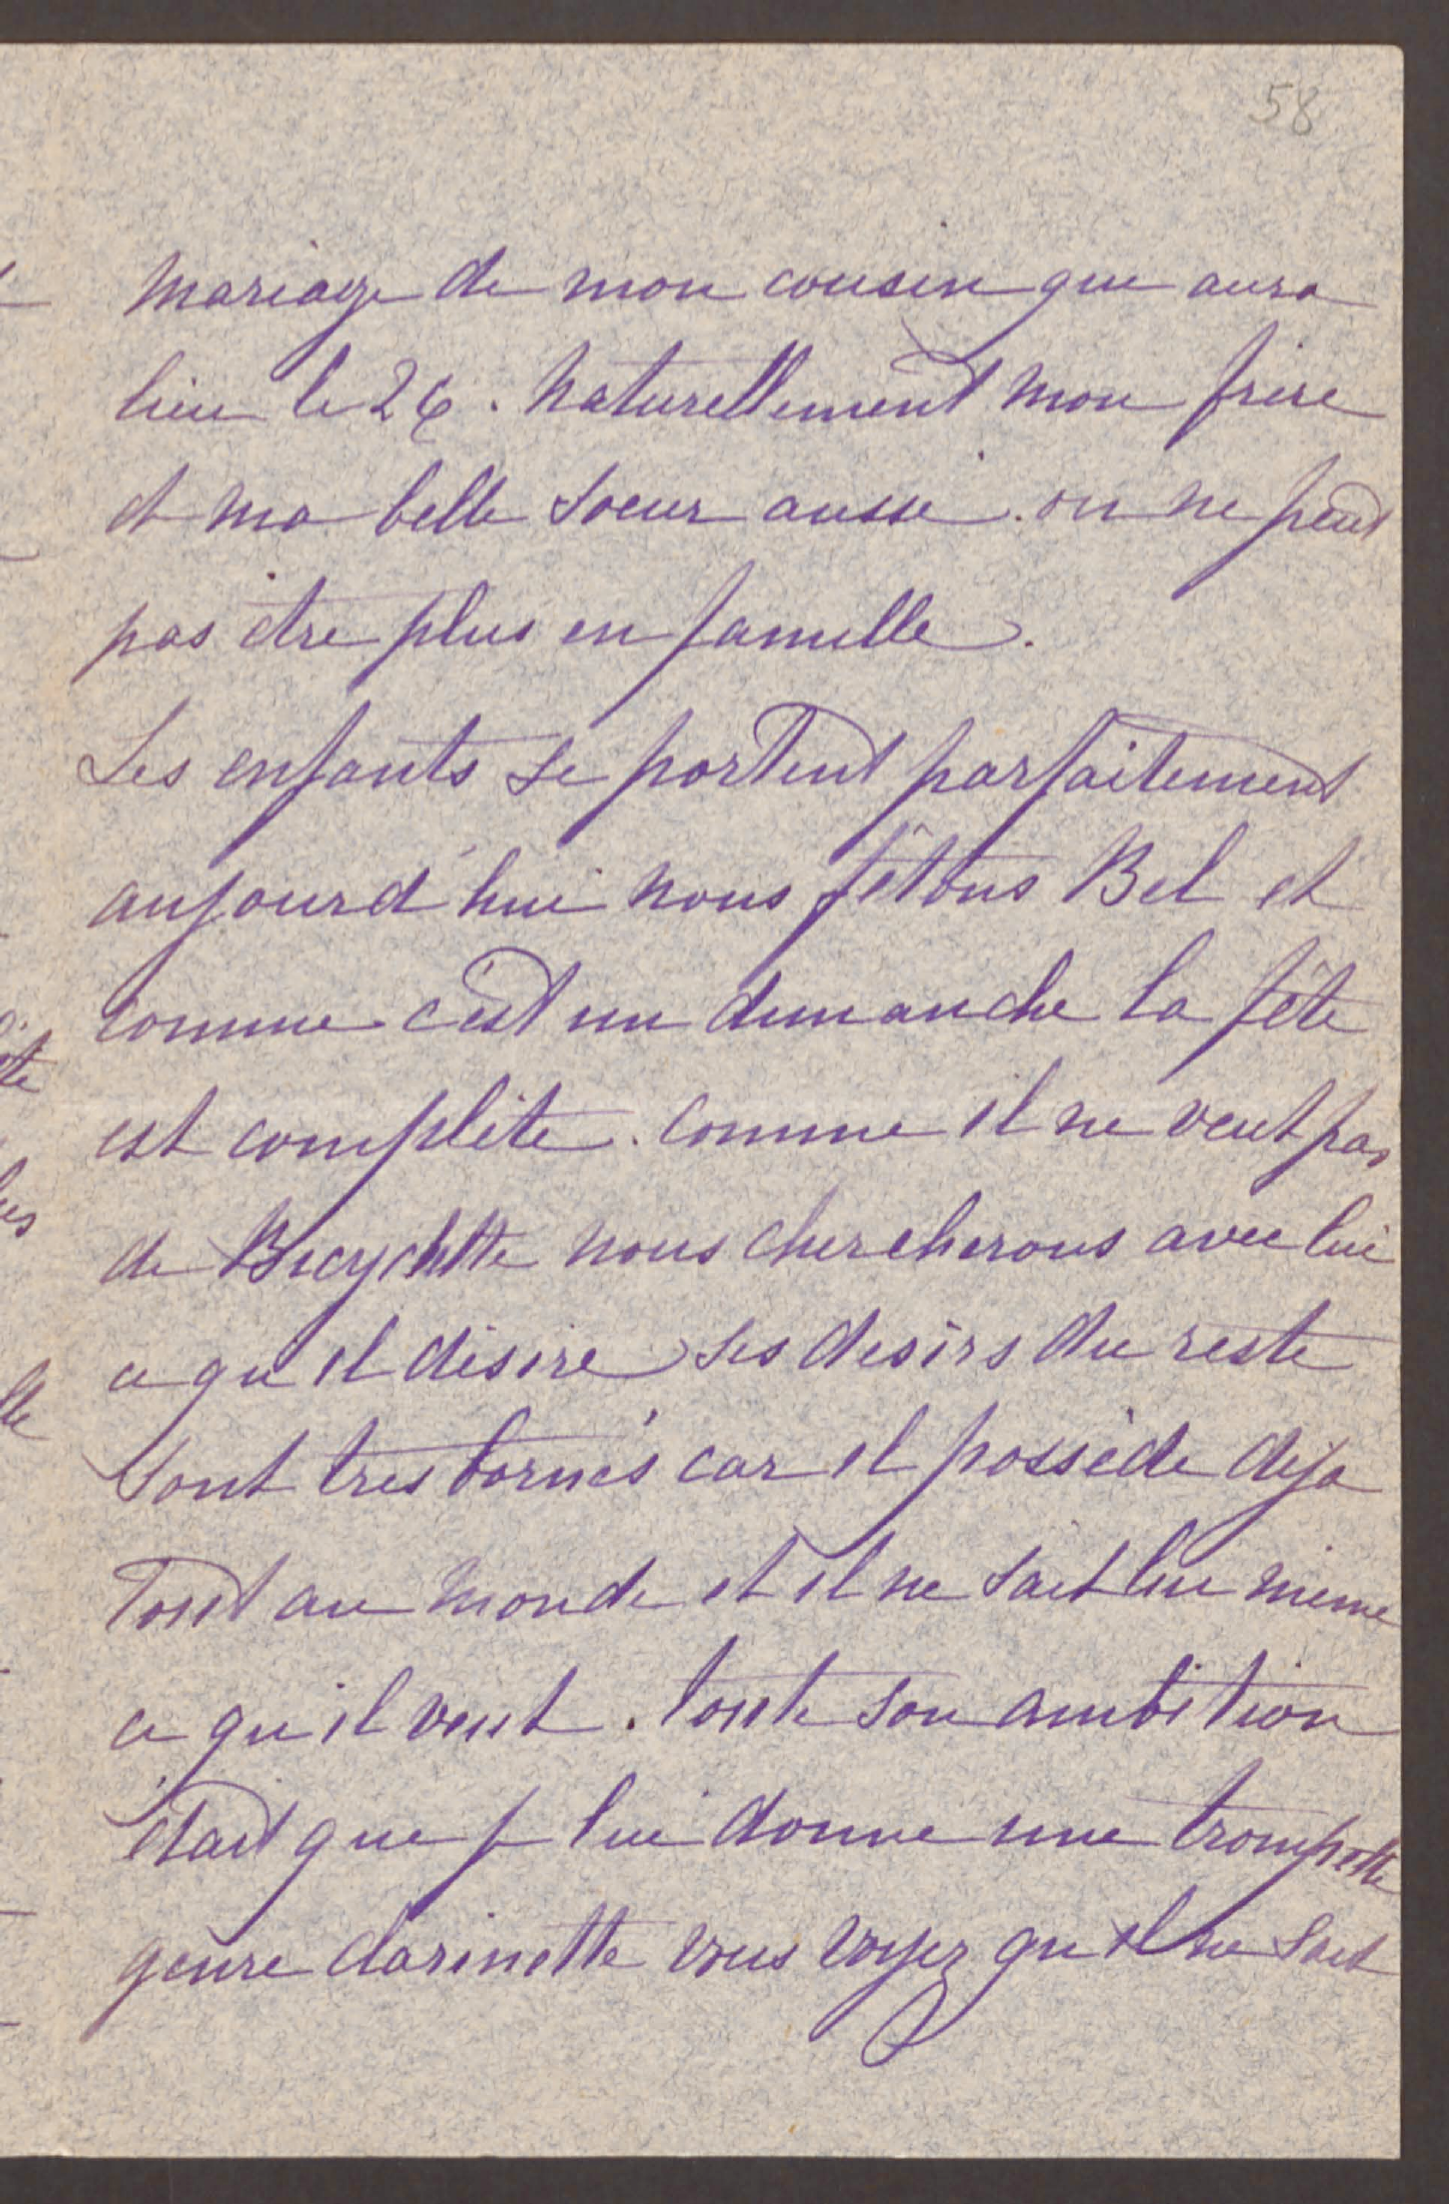 58
mariage de mon cousin qui aura
lieu le 26. Naturellement mon frère
et ma belle soeur aussi. on ne peut
pas être plus en famille.
Les enfants se portent parfaitement
aujourd'hui nous fêtons Bel et
comme c'est un dimanche la fête
est complète. Comme il ne veut pas
de Bicyclette nous chercherons avec lui
ce qu'il désire ses desirs du reste
sont tres bornés car il possède deja
Tout au monde et il ne sait lui même
ce qu'il veut. Toute son ambition
était que je lui donne une trompette
genre clarinette vous voyez qu'il ne sait